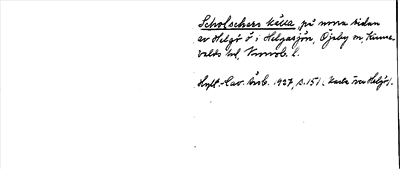 Scholschers källa, på norra sidan
av Helgö ö i Helgasjön, Öjaby sn, Kinne-
valds hd, Kronob. l.
Hylt.-Cav. årsb. 1927, s. 151, karta över Helgö.